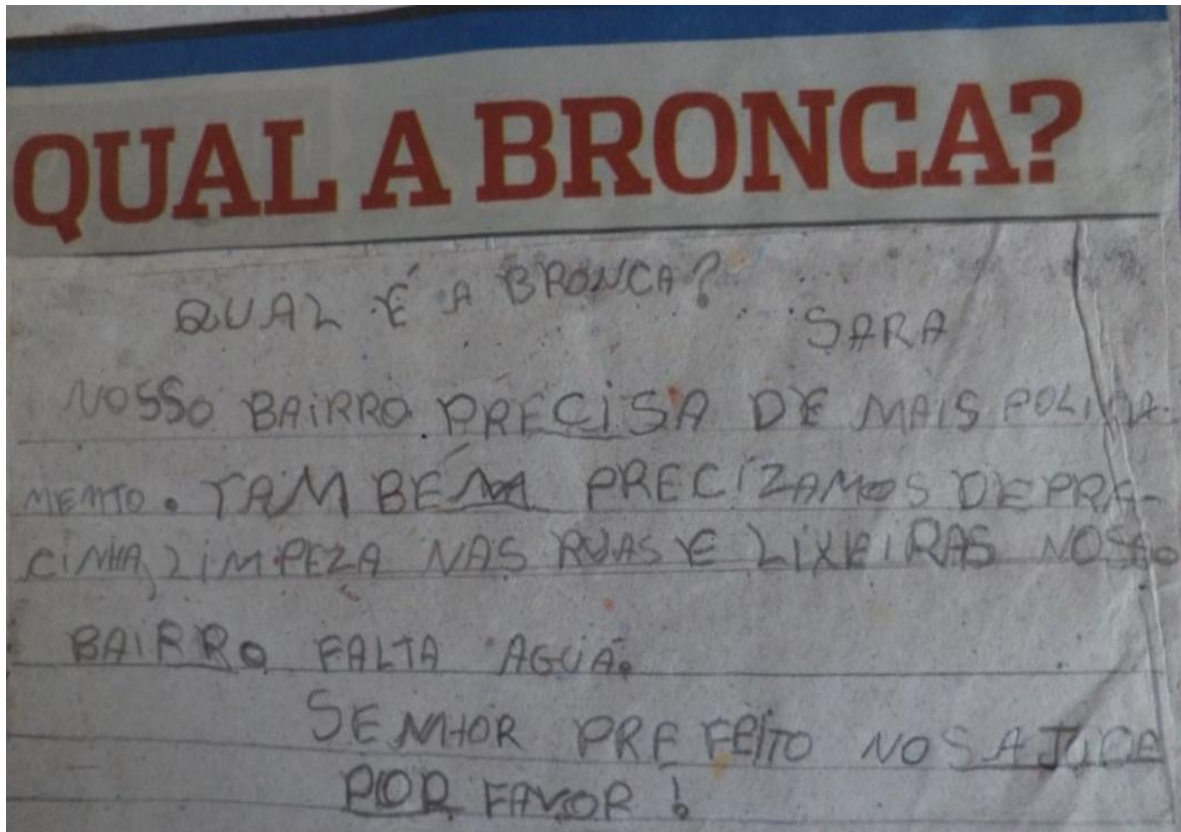 QUAL A BRONCA?
QUAL É A BRONCA?
SARA
NOSSO BAIRRO PRECISA DE MAIS POLICIA-
MENTO. TAMBÉM PRECIZAMOS DE PRA-
CINHA, LIMPEZA NAS RUAS E LIXEIRAS NOSSO
BAIRRO FALTA AGUA.
SENHOR PREFEITO NOS AJUDE
POR FAVOR!